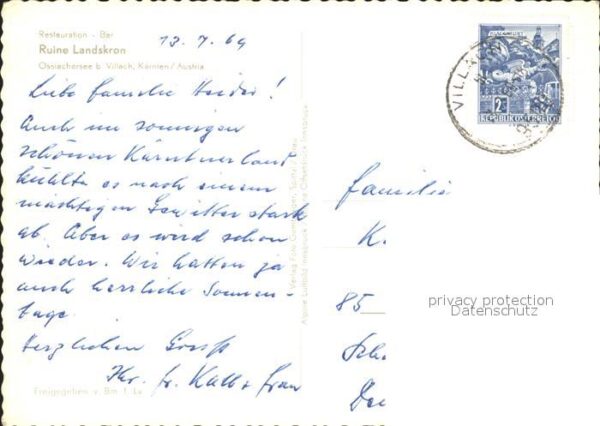 Restauration - Bar
Ruine Landskron
Ossiachersee b. Villach, Kärnten / Austria
13. 7. 69
Liebe Familie
Auch im sonnigen
schönen Kärntnerland
kühlte es nach einem
mächtigen Gewitter stark
ab. Aber es wird schon
wieder. Wir hatten ja
auch herrliche Sonnen-
tage.
Herzlichen Gruß
Ihr Fr. Kalb + Frau
Freigegeben v. Bm. f. Lv.
KLAGENFURT
2
REPUBLIK ÖSTERREICH
VILLACH
Familie
K.
85
privacy protection
Datenschutz